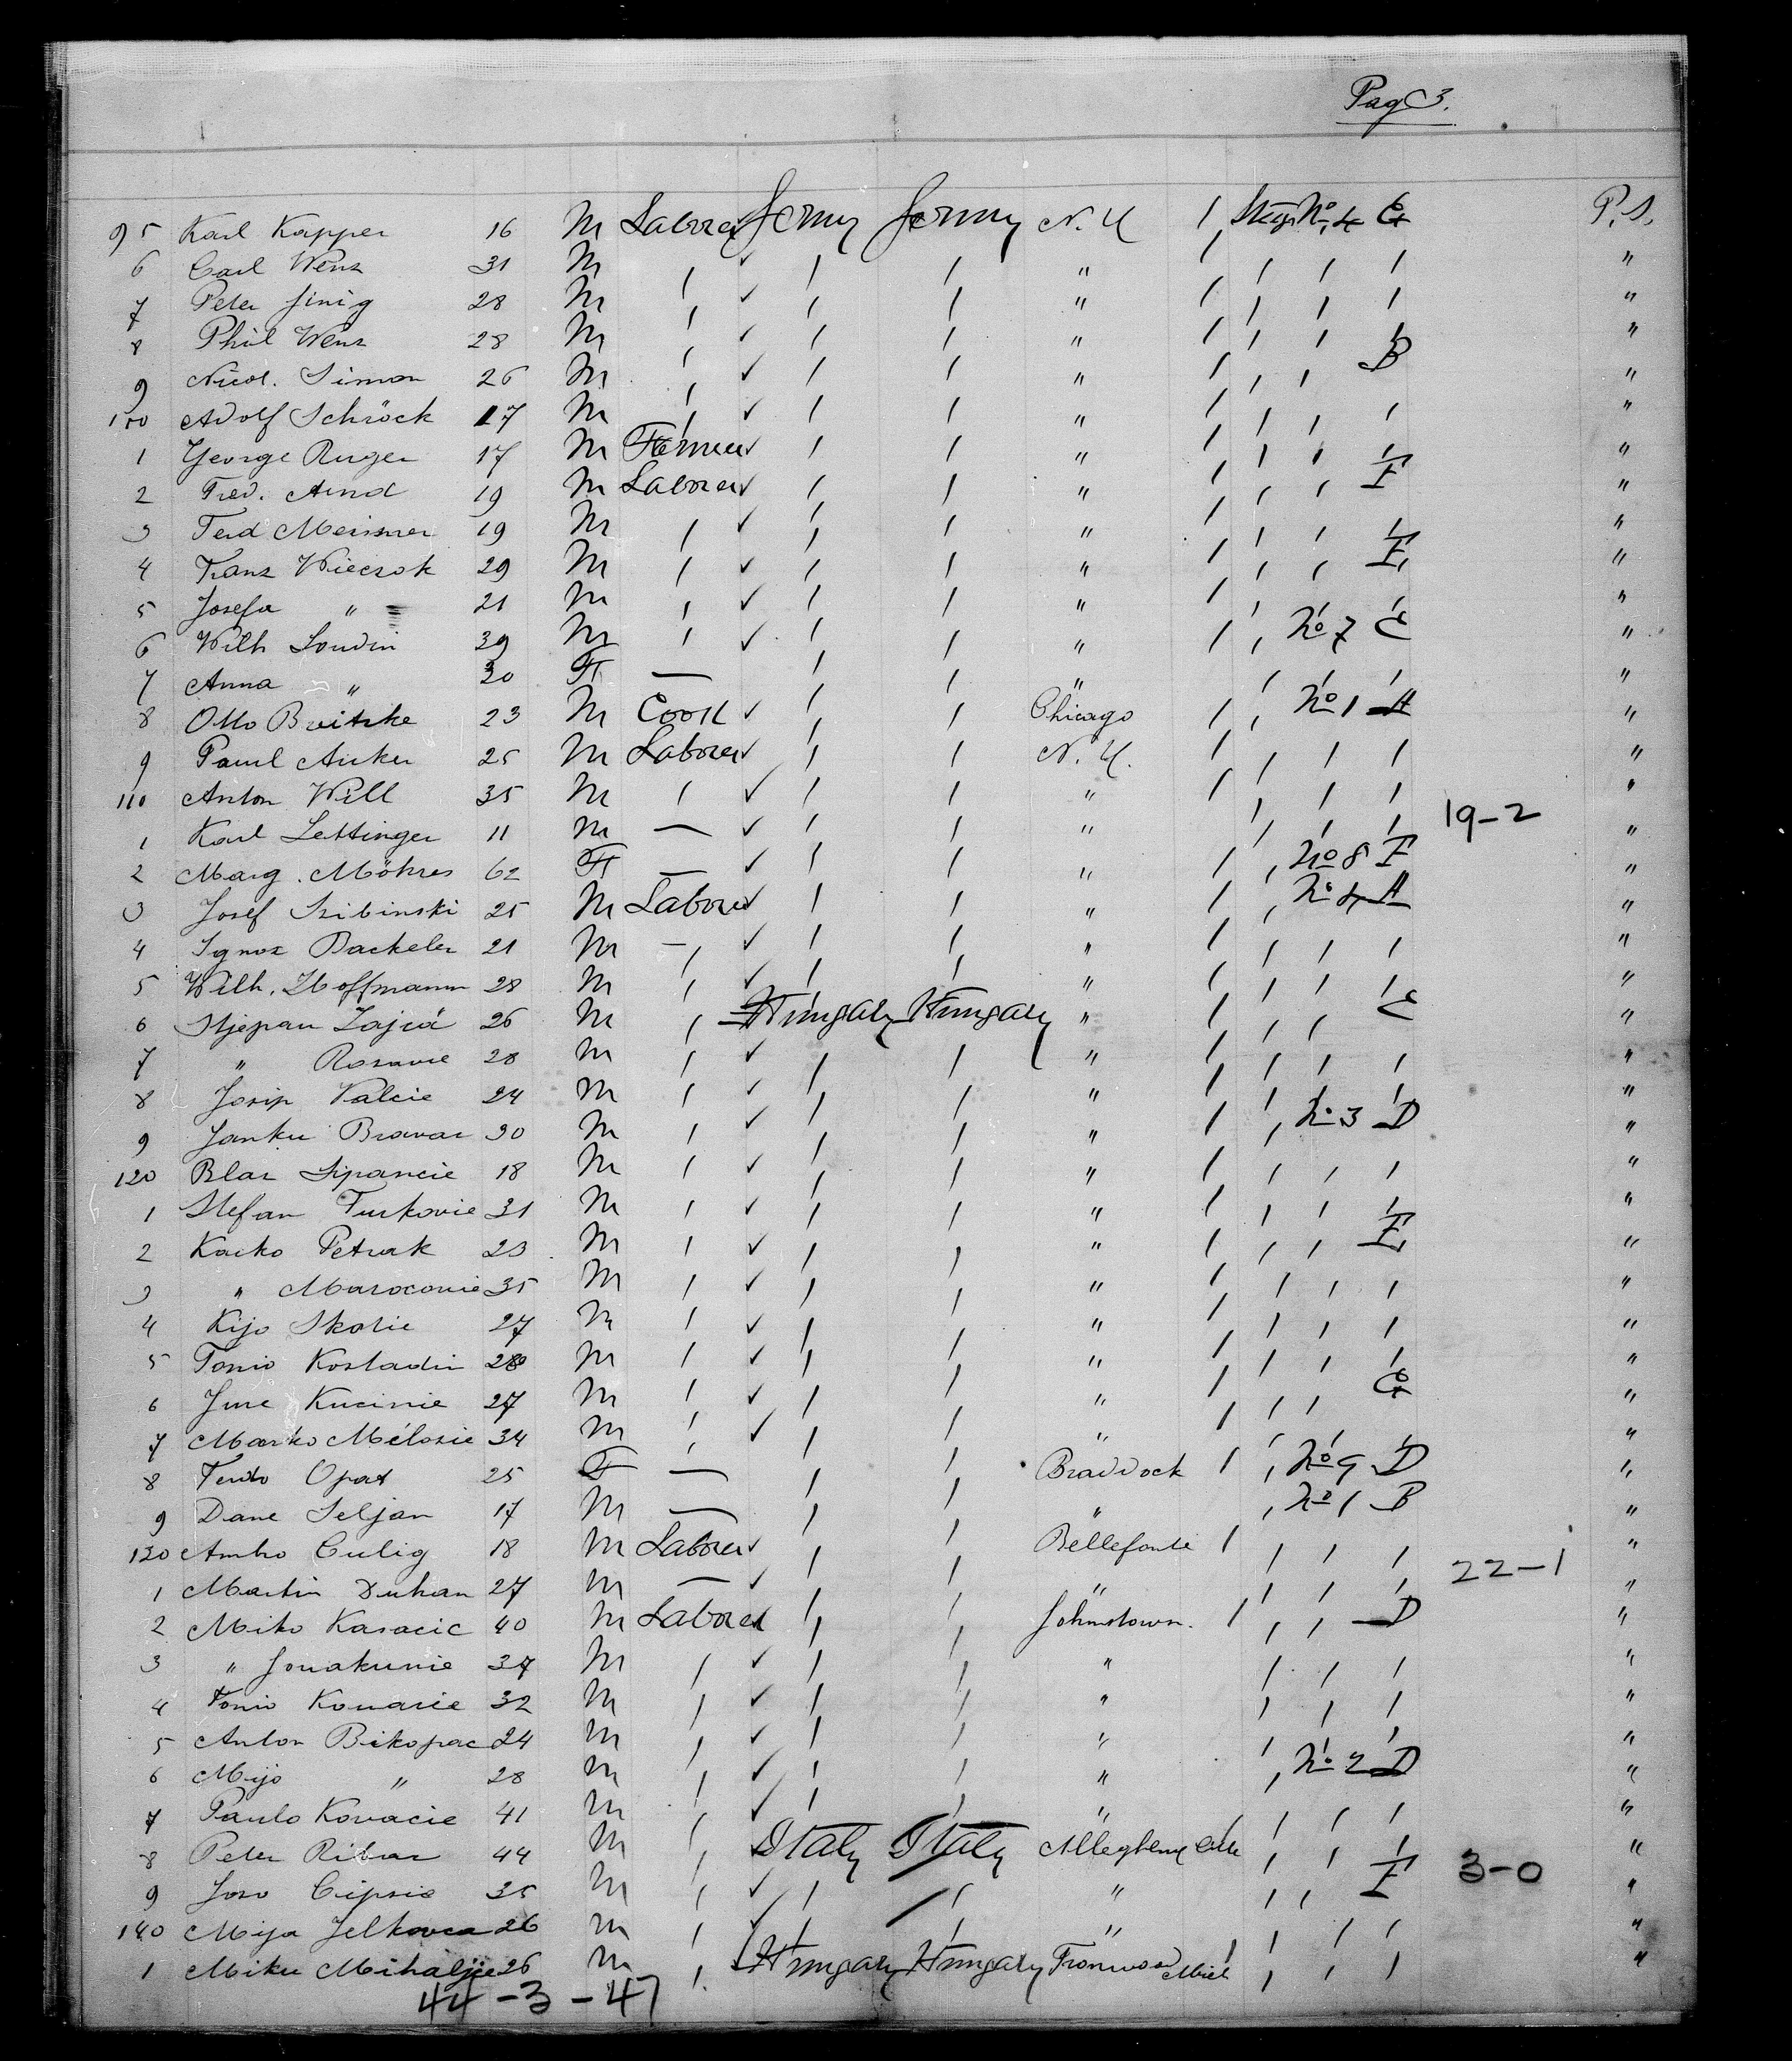 Page 3.
95 Karl Kapper 16 M Laborer Germy Germy N.Y. 1 No 4 G P.S.
6 Carl Wenz 31 M ✓ " "
7 Peter Jinig 28 M ✓ " "
8 Phil Wenz 28 M ✓ " "
9 Nicol. Simon 26 M ✓ " B "
100 Adolf Schröck 17 M ✓ " "
1 George Ruger 17 M Farmer ✓ " "
2 Fred. Arnd 19 M Laborer ✓ " F "
3 Ferd Meissner 19 M ✓ " "
4 Franz Wieczok 29 M ✓ " E "
5 Josefa " 21 M ✓ " "
6 Wilh Loudin 39 M ✓ " No 7 C "
7 Anna " 30 F — " "
8 Otto Breitzke 23 M Cook ✓ Chicago 1 No 1 A "
9 Paul Anker 25 M Laborer ✓ N.Y. "
110 Anton Will 35 M ✓ " "
19-2
1 Karl Lettinger 11 M — ✓ " "
2 Marg. Möhres 62 F — ✓ " 1 No 8 F "
3 Josef Szibinski 25 M Laborer ✓ " 1 No 4 A "
4 Ignaz Backeler 21 M ✓ " "
5 Wilh. Hoffmann 28 M ✓ " "
6 Stjepan Zajića 26 M Hungary Hungary " C "
7 " Rosavie 28 M ✓ " "
8 Josip Valcie 24 M ✓ " "
9 Janku Bravar 30 M ✓ " No 3 D "
120 Blaz Sipancie 18 M ✓ " "
1 Stefan Turkovie 31 M ✓ " "
2 Karko Petrak 23 M ✓ " E "
3 " Maroconie 35 M ✓ " "
4 Kijo Skorie 27 M ✓ " "
5 Tonio Kostadin 28 M ✓ " "
6 Jure Kucinie 27 M ✓ " G "
7 Marko Milosie 34 M ✓ " "
8 Opat 25 F — Braddock 1 No 9 D "
9 Dane Seljan 17 M — " No 1 B "
130 Culig 18 M Laborer ✓ Bellefonte 1 "
22-1
1 Martin Duhan 27 M — ✓ " "
2 Miko Karacic 40 M Laborer Johnstown. 1 D "
3 " Jonakunie 37 M ✓ " "
4 Tonio Kovarie 32 M ✓ " "
5 Anton Bikopac 24 M ✓ " "
6 Mijo " 28 M ✓ " No 2 D "
7 Paulo Kovacie 41 M ✓ " "
8 Peter Ribar 44 M Italy Italy Allegheny "
9 Joso Cipsie 35 M ✓ " F 3-0 "
140 Mija Jelkovca 26 M ✓ " "
1 Miku Mihaljie 26 M Hungary Hungary Ironwood Mich "
44-3-47